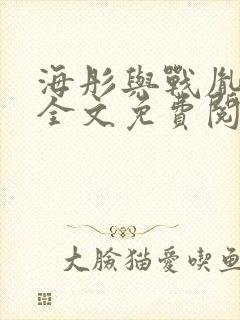 海彤與戰胤
全文免費閱
大臉猫愛喫鱼